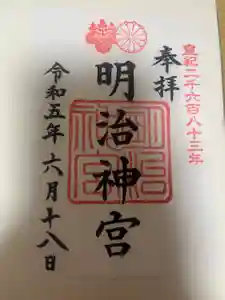 皇紀二千六百八十三年
奉拝
明治神宮
令和五年六月十八日